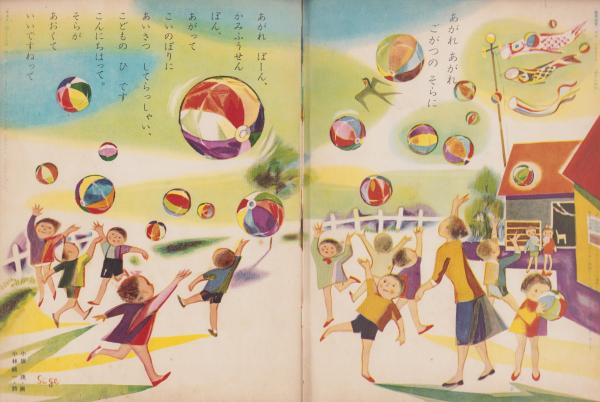 あがれ あがれ
ごがつの そらに
あがれ ぽーん、
かみふうせん
ぽん、
あがって
こいのぼりに
あいさつ してらっしゃい、
こどもの ひ です
こんにちはって。
そらが
あおくて
いいですねって
Sige